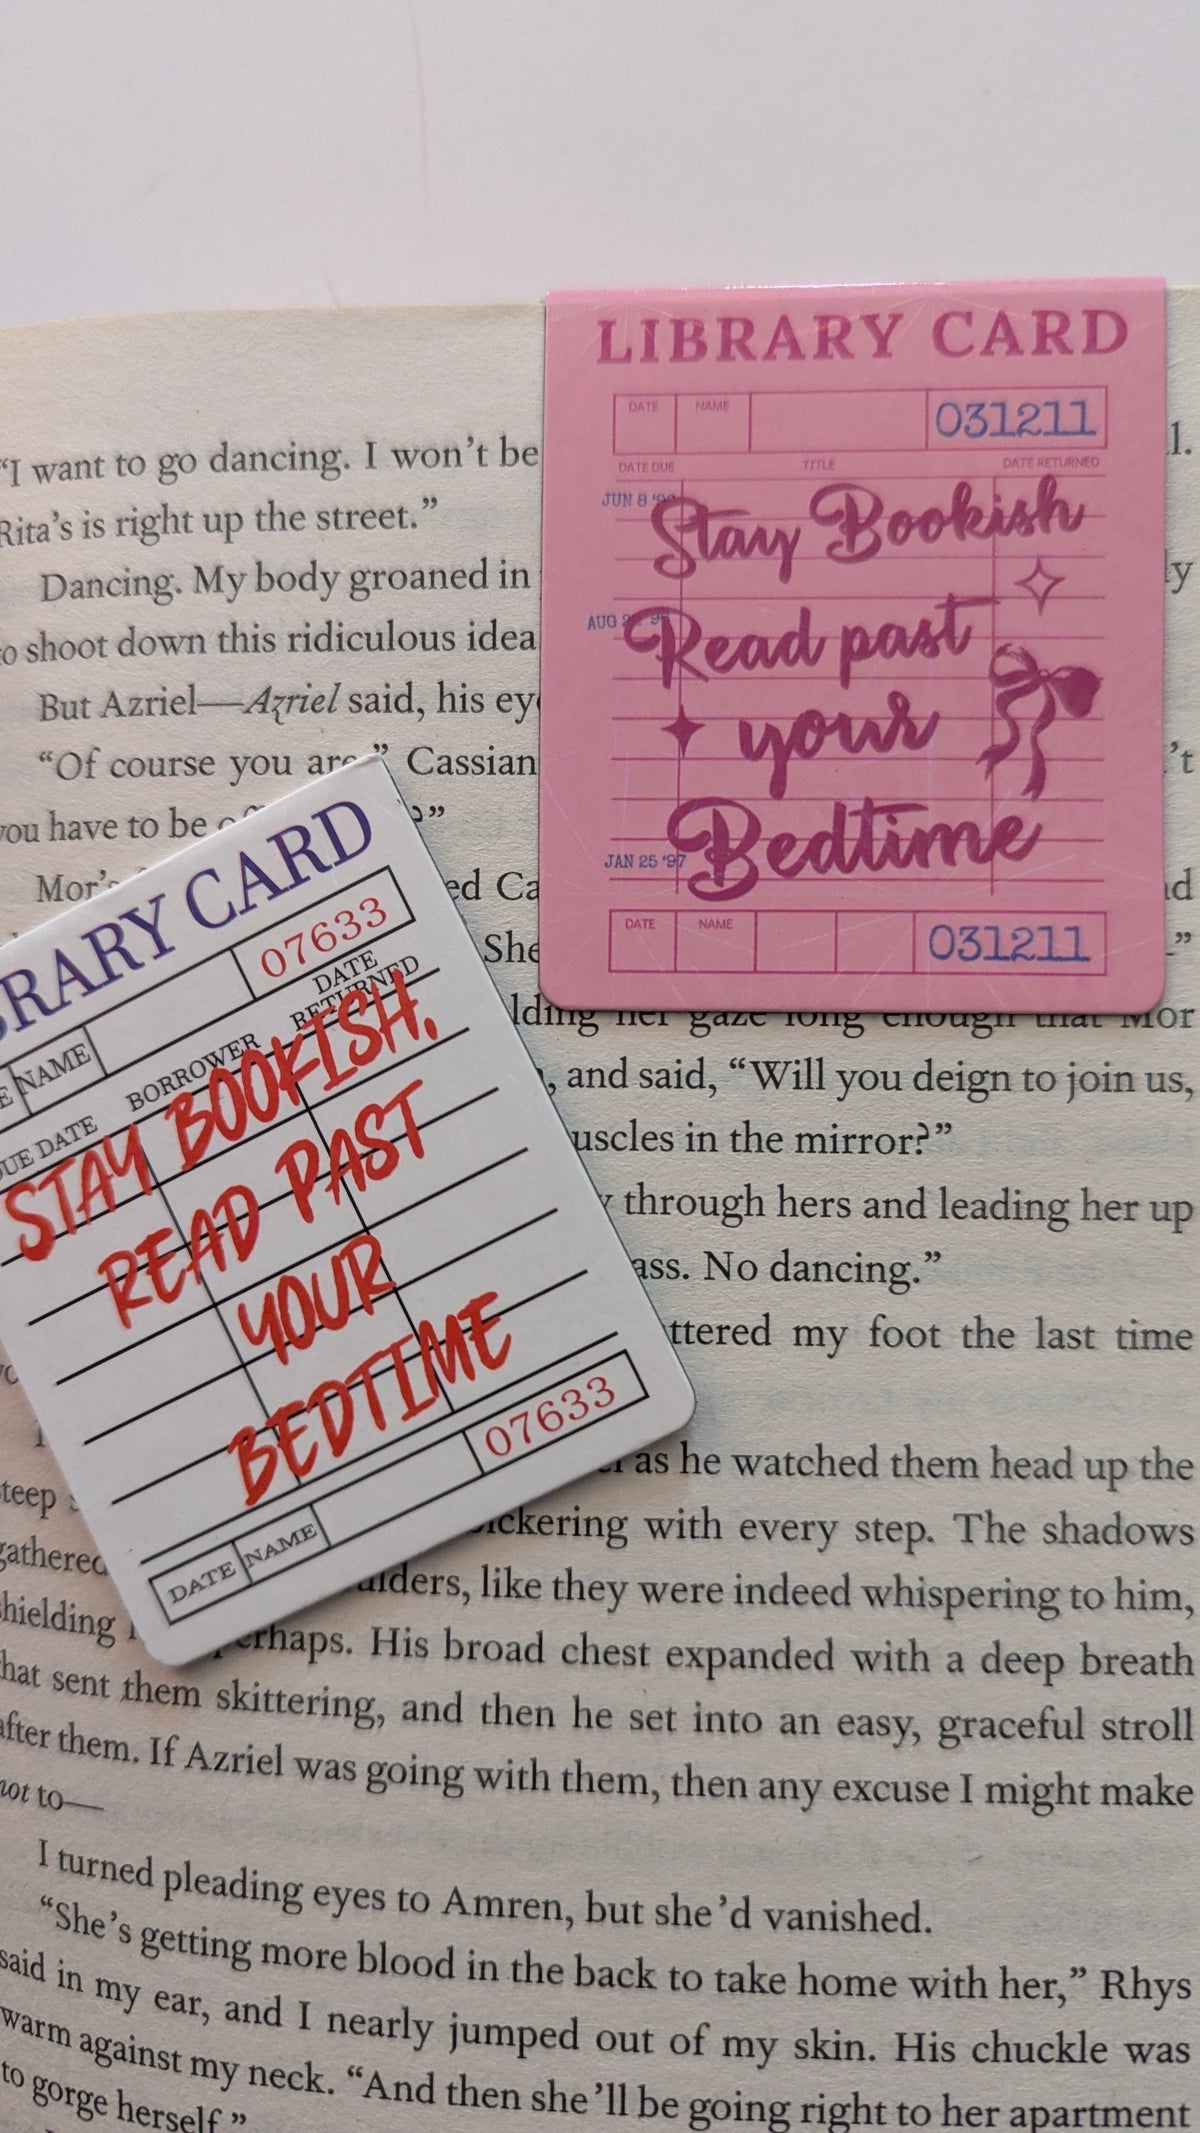 LIBRARY CARD
DATE NAME 031211
DATE DUE TITLE DATE RETURNED
JUN 8
Stay Bookish
AUG
Read past
your
JAN 25 '97
Bedtime
DATE NAME 031211
CARD
NAME 07633
DUE DATE BORROWER DATE RETURNED
STAY BOOKISH,
READ PAST
YOUR
BEDTIME
DATE NAME 07633
“I want to go dancing. I won’t be
Rita’s is right up the street.”
Dancing. My body groaned in
to shoot down this ridiculous idea
But Azriel—Azriel said, his
“Of course you are,” Cassian
you have to be
Mor’s
She
her gaze long enough that Mor
and said, “Will you deign to join us,
in the mirror?”
through hers and leading her up
No dancing.”
my foot the last time
as he watched them head up the
steep
gathered with every step. The shadows
like they were indeed whispering to him,
shielding perhaps. His broad chest expanded with a deep breath
that sent them skittering, and then he set into an easy, graceful stroll
after them. If Azriel was going with them, then any excuse I might make
not to—
I turned pleading eyes to Amren, but she’d vanished.
“She’s getting more blood in the back to take home with her,” Rhys
said in my ear, and I nearly jumped out of my skin. His chuckle was
warm against my neck. “And then she’ll be going right to her apartment
to gorge herself.”